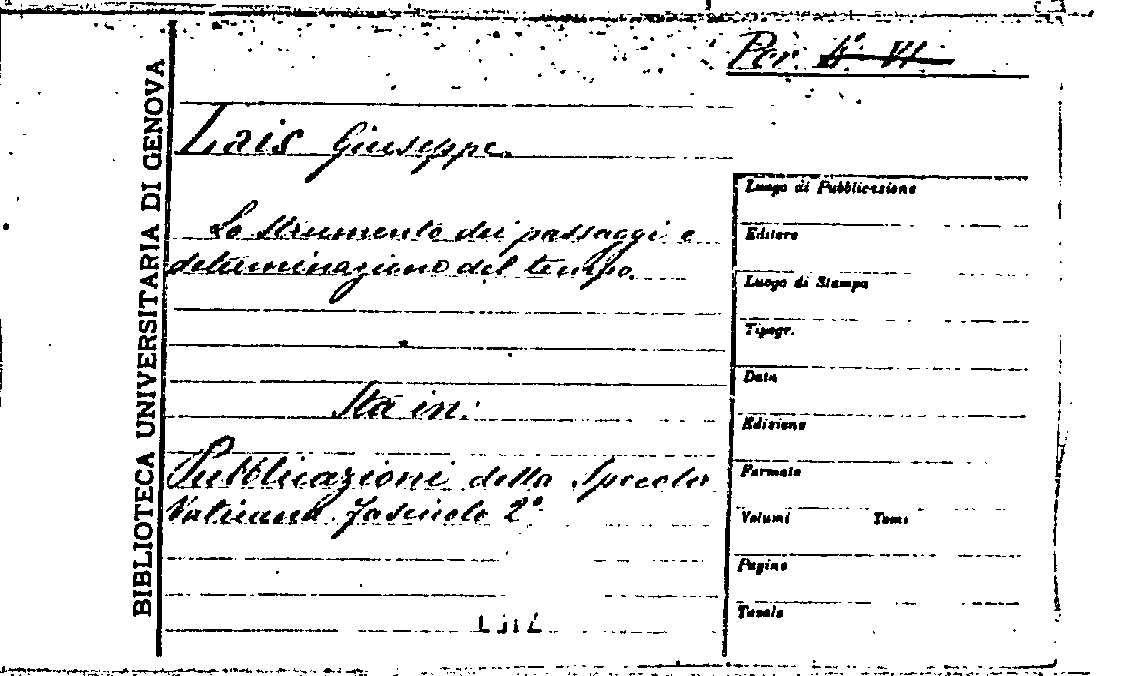 Per. 4° VI
BIBLIOTECA UNIVERSITARIA DI GENOVA
Lais Giuseppe.
Lo strumento dei passaggi e
determinazione del tempo.
Sta in:
Pubblicazioni della Specola
Vaticana. Fascicolo 2°
Luogo di Pubblicazione
Editore
Luogo di Stampa
Tipogr.
Data
Edizione
Formato
Volumi Tomi
Pagine
Tavole